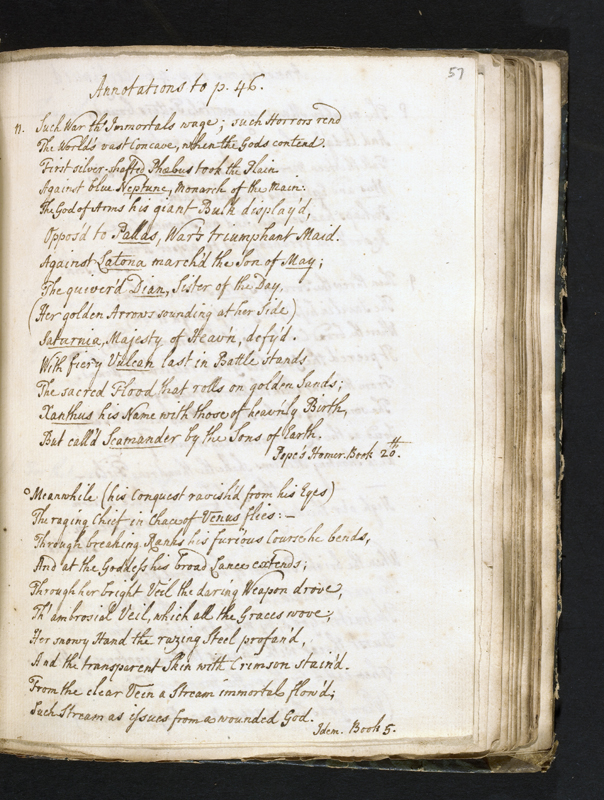 57
Annotations to p. 46.
n. Such War th' Immortals wage; such Horrors rend
The World's vast Concave, when the Gods contend.
First silver-shafted Phœbus took the Plain
Against blue Neptune, Monarch of the Main:
The God of Arms his giant Bulk display'd,
Oppos'd to Pallas, War's triumphant Maid.
Against Latona march'd the Son of May;
The quiver'd Dian, Sister of the Day,
(Her golden Arrows sounding at her Side)
Saturnia, Majesty of Heav'n, defy'd.
With fiery Vulcan last in Battle stands
The sacred Flood that rolls on golden Sands;
Xanthus his Name with those of heav'nly Birth,
But call'd Scamander by the Sons of Earth.
Pope's Homer. Book 20.th
o Meanwhile (his Conquest ravish'd from his Eyes)
The raging Chief in Chace of Venus flies:—
Through breaking Ranks his furious Course he bends,
And at the Goddess his broad Lance extends;
Through her bright Veil the daring Weapon drove,
Th' ambrosial Veil, which all the Graces wove;
Her snowy Hand the razing Steel profan'd,
And the transparent Skin with Crimson stain'd.
From the clear Vein a Stream immortal flow'd;
Such Stream as issues from a wounded God.
Idem. Book 5.